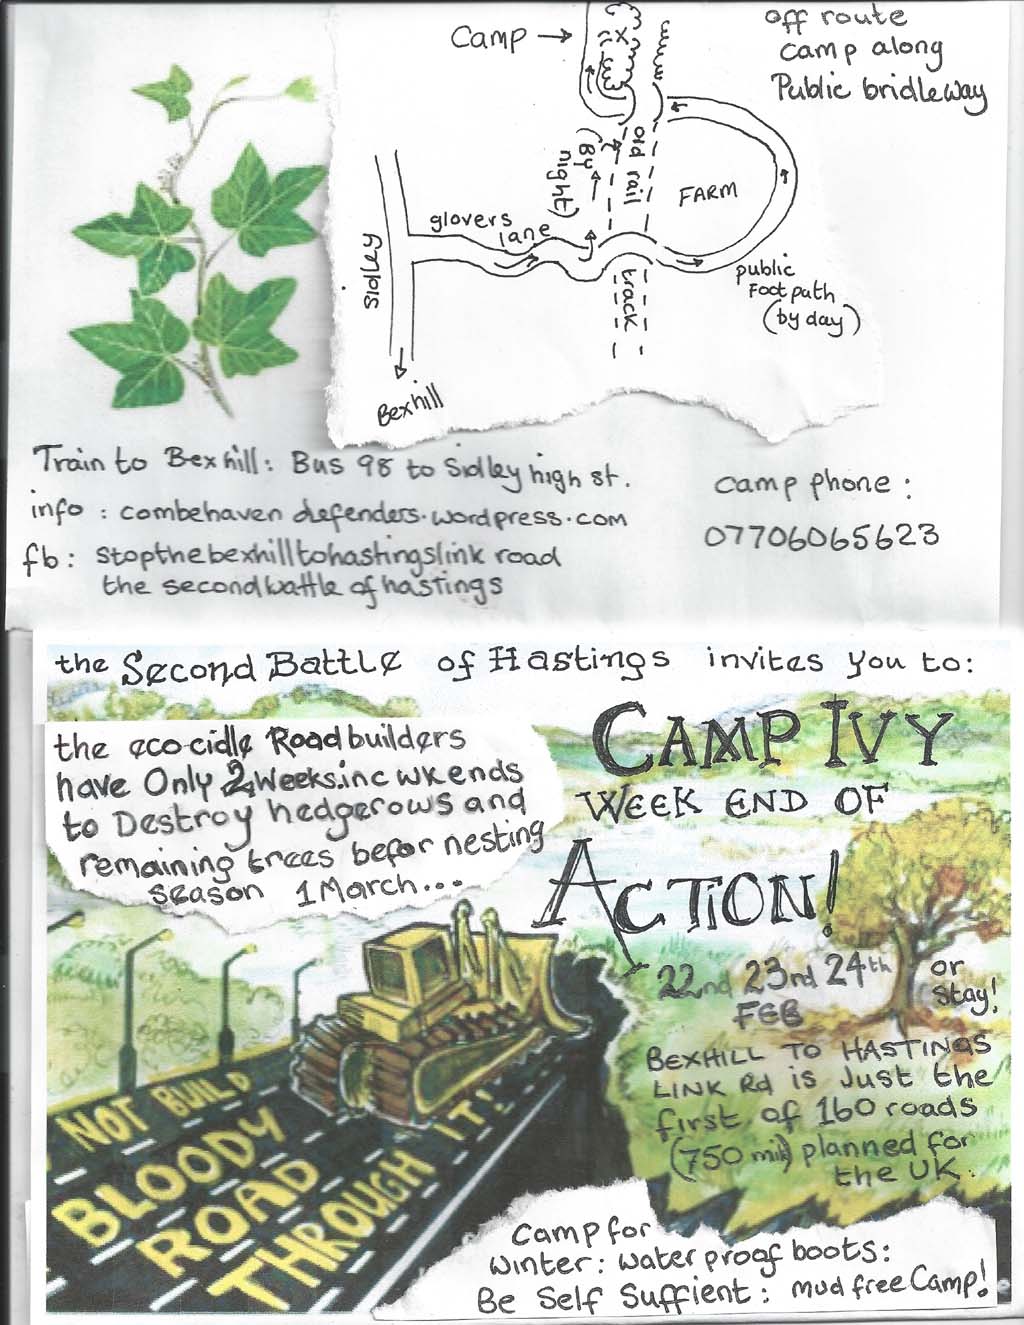 Camp →
off route
camp along
Public bridleway
old rail
track
(By
night)
FARM
glovers
lane
Sidley
public
Foot path
(by day)
Bexhill
Train to Bexhill: Bus 98 to Sidley high st.
info : combehaven defenders.wordpress.com
fb: stopthebexhilltohastingslink road
the secondbattle of hastings
camp phone :
07706065623
the Second Battle of Hastings invites you to:
the ecocidle Roadbuilders
have Only 2 Weeks.inc wkends
to Destroy hedgerows and
remaining trees befor nesting
season 1 March...
CAMP IVY
WEEK END OF
ACTION!
22nd 23rd 24th or
FEB stay!
BEXHILL TO HASTINGS
LINK Rd is Just the
first of 160 roads
(750 mil) planned for
the UK.
NOT BUILD
BLOODY
ROAD
THROUGH
IT!
Camp for
winter: water proof boots:
Be Self Suffient: mud free Camp!